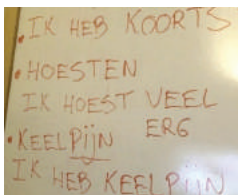 • IK HEB KOORTS
• HOESTEN
IK HOEST VEEL
ERG
• KEELPIJN
IK HEB KEELPIJN